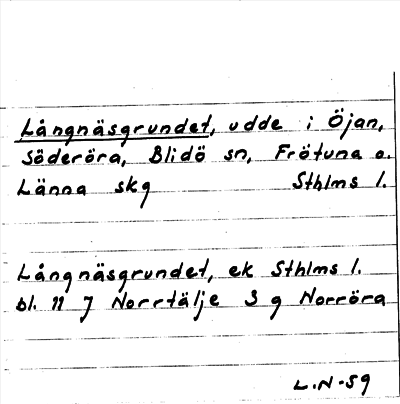 Långnäsgrundet, udde i Öjan,
Söderöra, Blidö sn, Frötuna o.
Länna skg Sthlms l.
Långnäsgrundet, ek Sthlms l.
bl. 11 J Norrtälje 3 g Norröra
L.N-59